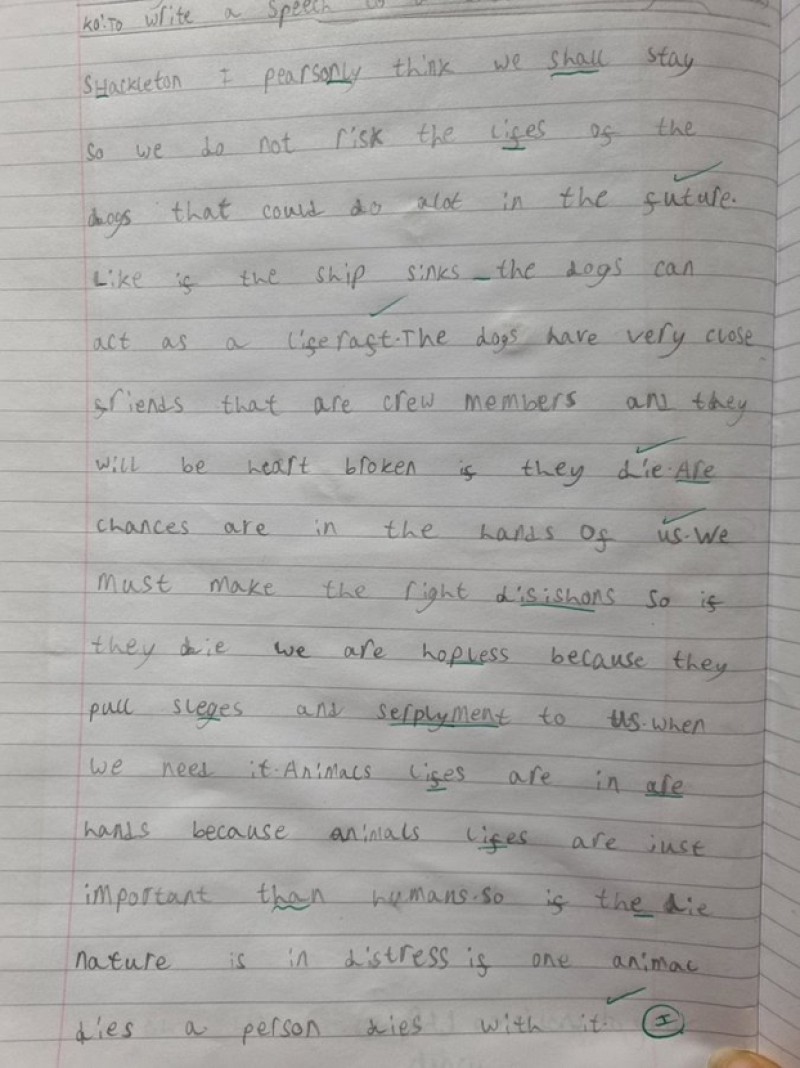 KO: TO write a speech
Shackleton I pearsonly think we shall stay
so we do not risk the lifes of the
dogs that could do alot in the future.
Like if the ship sinks the dogs can
act as a life raft. The dogs have very close
friends that are crew members and they
will be heart broken if they die. Are
chances are in the hands of us. We
must make the right disishons so if
they die we are hopless because they
pull sleges and serplyment to us. when
we need it. Animals lifes are in are
hands because animals lifes are just
important than humans. so if the die
nature is in distress if one animal
dies a person dies with it. I